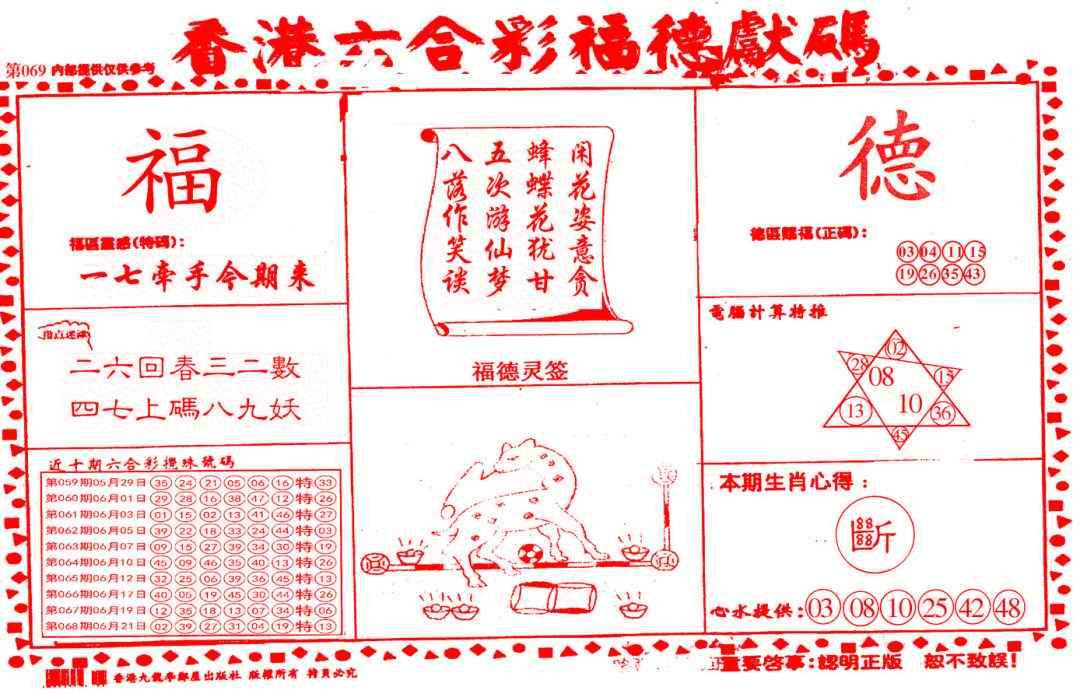 香港六合彩福德獻碼
第069 内部提供仅供参考
福
福區靈感(特碼):
一七牽手今期来
二六回春三二數
四七上碼八九妖
近十期六合彩攪珠號碼
第059期05月29日 35 24 21 05 06 16 特 33
第060期06月01日 29 28 16 38 47 12 特 26
第061期06月03日 01 15 02 13 41 46 特 27
第062期06月05日 39 22 18 33 24 44 特 03
第063期06月07日 09 15 27 39 34 30 特 19
第064期06月10日 45 09 46 35 40 13 特 26
第065期06月12日 32 25 06 39 36 45 特 13
第066期06月17日 40 05 19 45 30 44 特 26
第067期06月19日 12 35 18 13 07 34 特 06
第068期06月21日 02 39 27 31 04 19 特 13
闲花姿意贪
蜂蝶花犹甘
五次游仙梦
八落作笑谈
福德灵签
德
德區賜福(正碼):
03 04 11 15
19 26 35 43
電腦計算特推
02
28 08 15
13 10 36
45
本期生肖心得:
斷
心水提供: 03 08 10 25 42 48
香港九龍 出版社 版權所有 特頁必究
重要啓事:認明正版 恕不致誤!